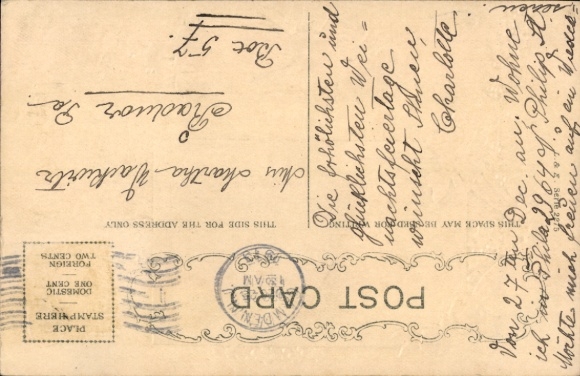 POST CARD
THIS SPACE MAY BE USED FOR WRITING
THIS SIDE FOR THE ADDRESS ONLY
PLACE
STAMP HERE
DOMESTIC
ONE CENT
FOREIGN
TWO CENTS
Miss Martha
Radnor Pa
Box 57.
Die fröhlichsten und
glücklichsten Wei-
nachtsfeiertage
wünscht Ihnen,
Charlotte.
Von 27ten Dec. an, Wohne
ich in Phila 2964 Philip St
Möchte mich freuen auf ein Wieder-
sehen.